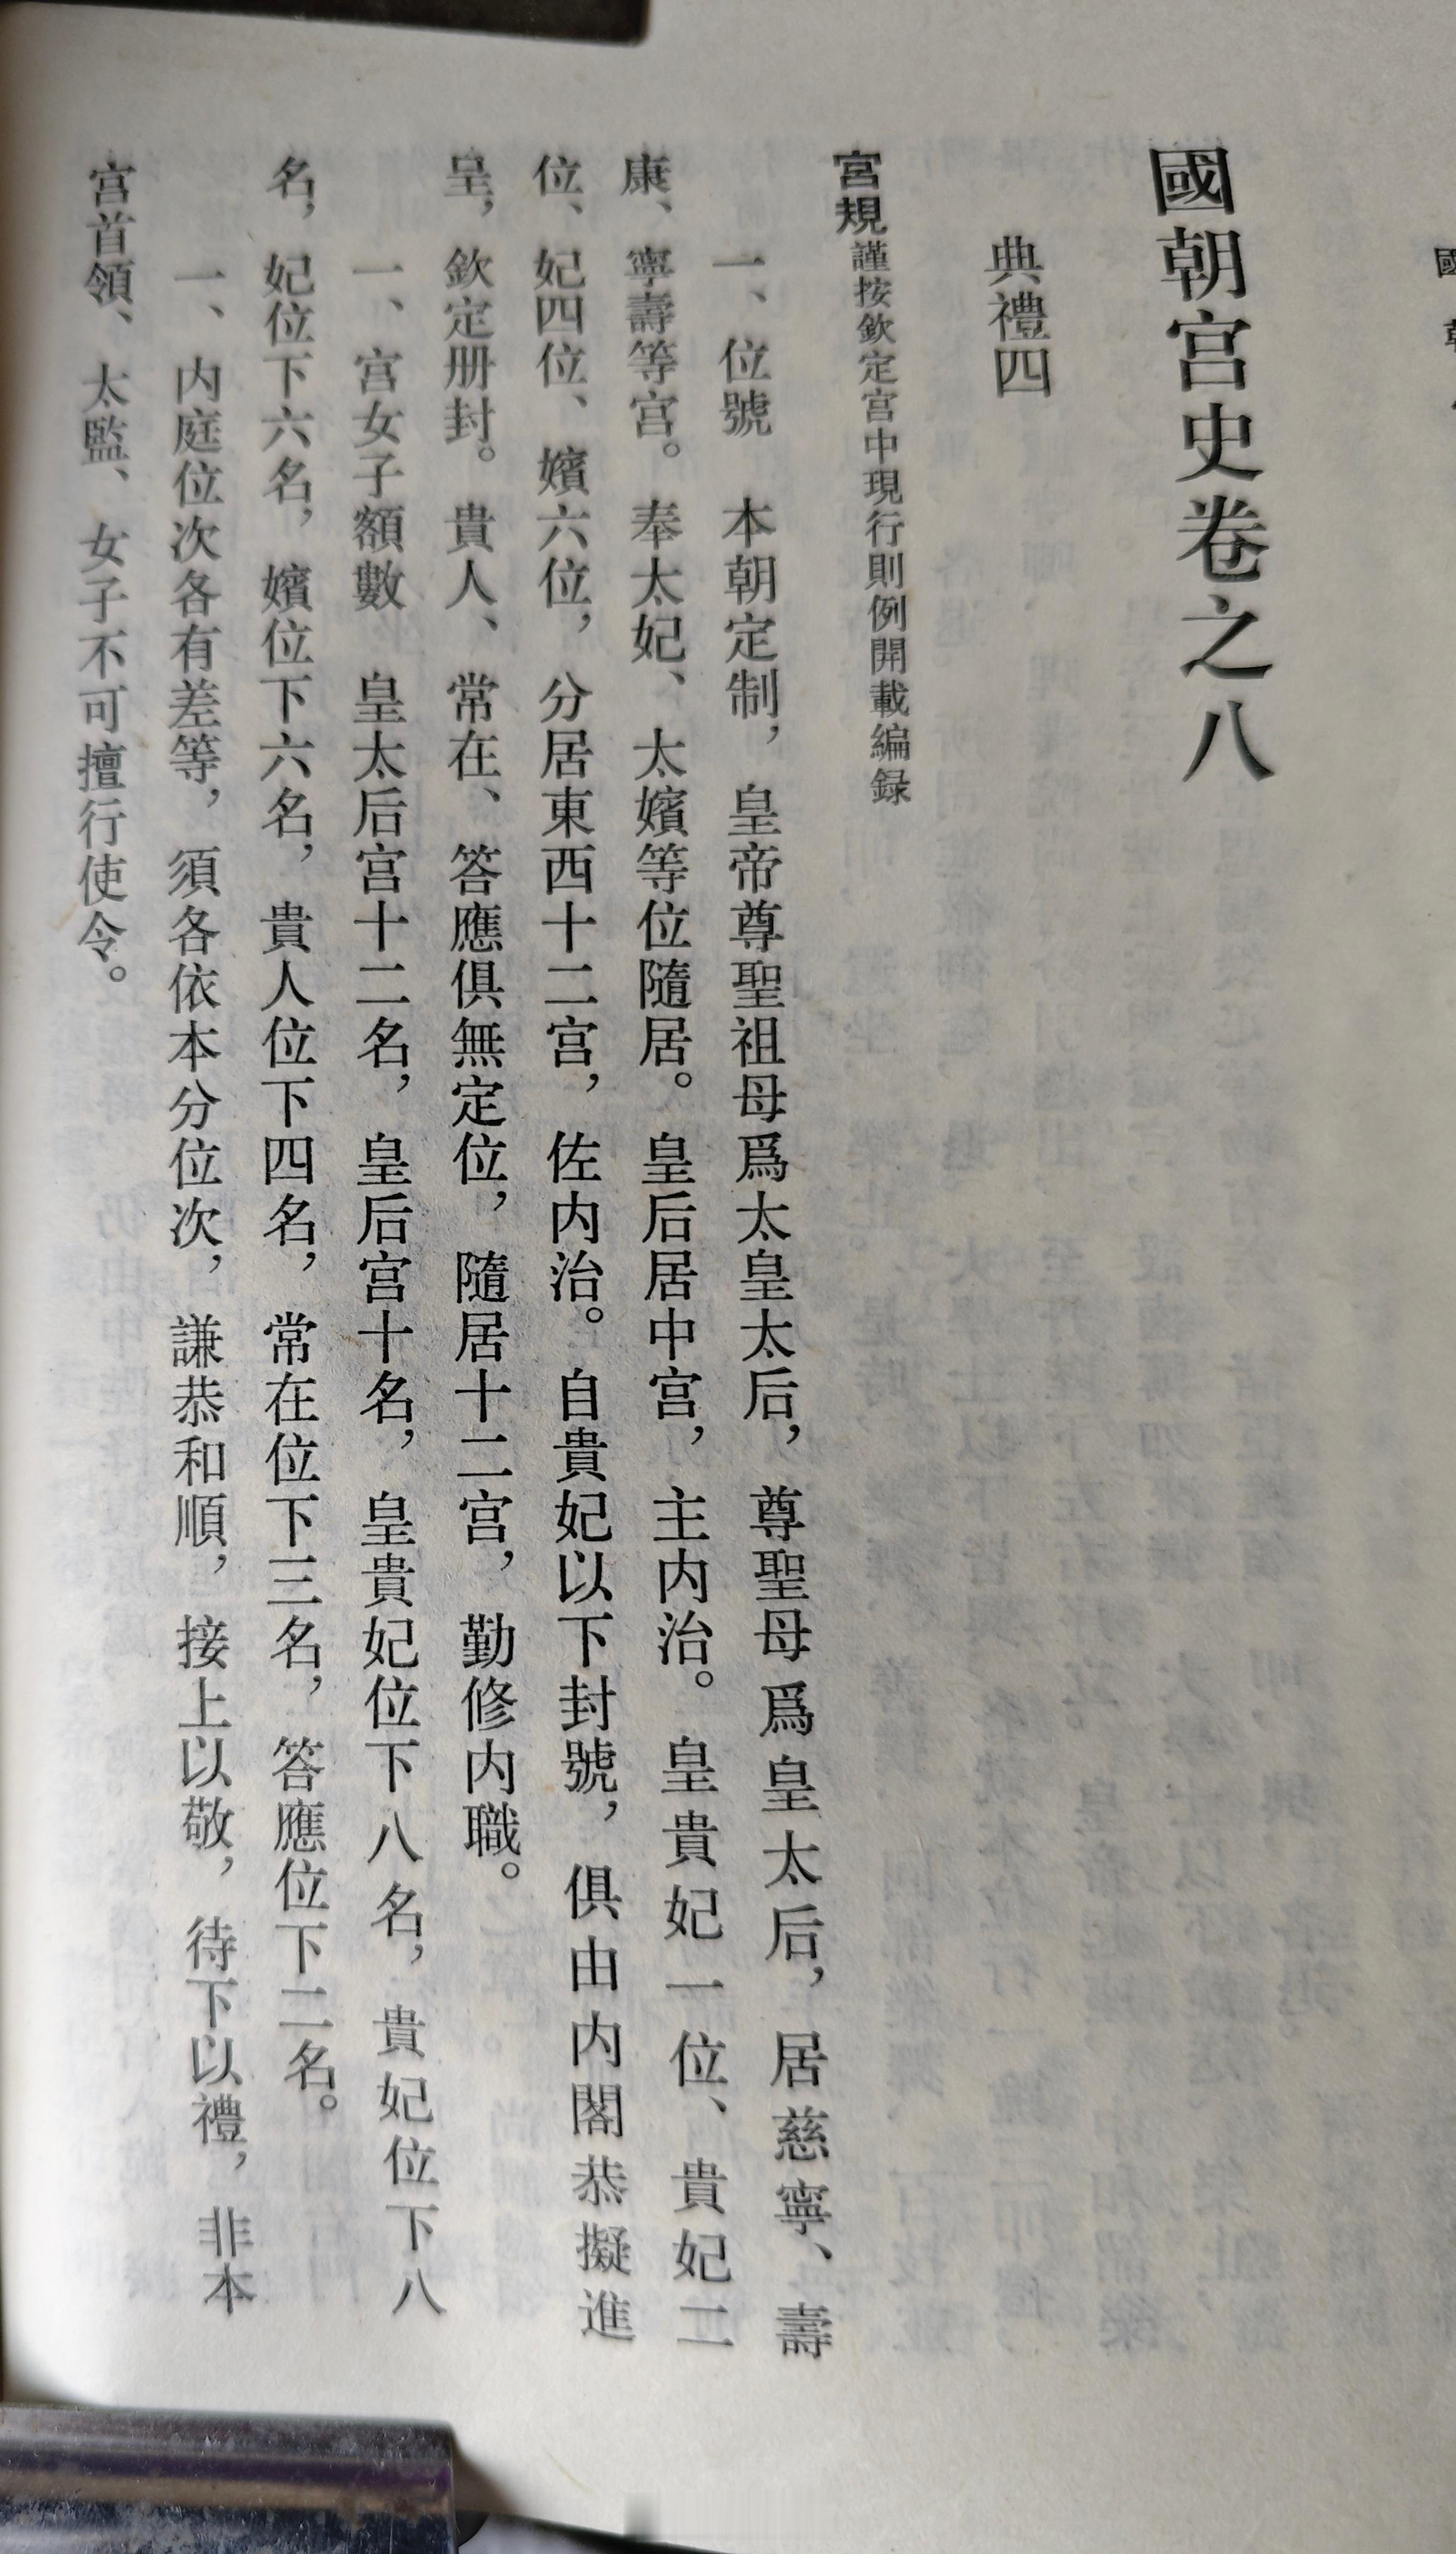 國朝宮史卷之八
典禮四
宮規謹按欽定宮中現行則例開載編録
一、位號　本朝定制，皇帝尊聖祖母爲太皇太后，尊聖母爲皇太后，居慈寧、壽
康、寧壽等宮。奉太妃、太嬪等位隨居。皇后居中宮，主内治。皇貴妃一位、貴妃二
位、妃四位、嬪六位，分居東西十二宮，佐内治。自貴妃以下封號，俱由内閣恭擬進
呈，欽定册封。貴人、常在、答應俱無定位，隨居十二宮，勤修内職。
一、宮女子額數　皇太后宮十二名，皇后宮十名，皇貴妃位下八名，貴妃位下八
名，妃位下六名，嬪位下六名，貴人位下四名，常在位下三名，答應位下二名。
一、内庭位次各有差等，須各依本分位次，謙恭和順，接上以敬，待下以禮，非本
宮首領、太監、女子不可擅行使令。